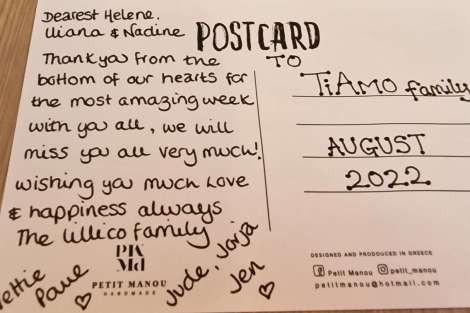 Dearest Helene,
Iliana & Nadine
Thank you from the
bottom of our hearts for
the most amazing week
with you all, we will
miss you all very much!
Wishing you much love
& happiness always
The Lillico family
Paul
Jude, Jorja
Jen
PIK
Md
PETIT MANOU
HANDMADE
POSTCARD
TO
TiAMO family
AUGUST
2022
DESIGNED AND PRODOUCED IN GREECE
Petit Manou petit_manou
petitmanou@hotmail.com